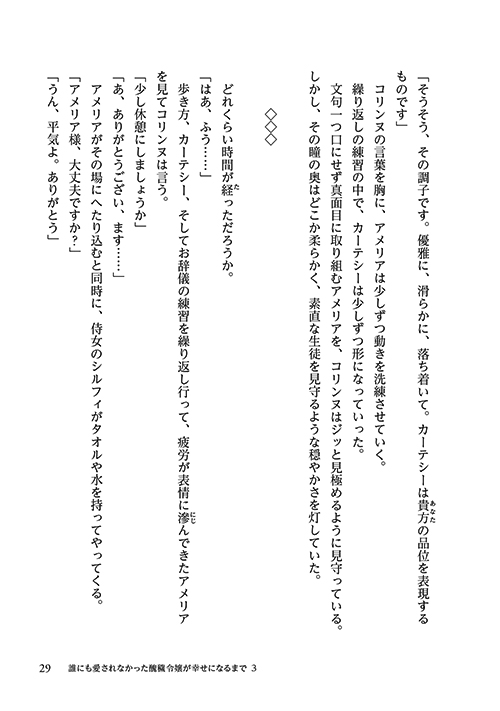 「そうそう、その調子です。優雅に、滑らかに、落ち着いて。カーテシーは貴方の品位を表現する
ものです」
コリンヌの言葉を胸に、アメリアは少しずつ動きを洗練させていく。
繰り返しの練習の中で、カーテシーは少しずつ形になっていった。
文句一つ口にせず真面目に取り組むアメリアを、コリンヌはジッと見極めるように見守っている。
しかし、その瞳の奥はどこか柔らかく、素直な生徒を見守るような穏やかさを灯していた。
◇◇◇
どれくらい時間が経っただろうか。
「はあ、ふう……」
歩き方、カーテシー、そしてお辞儀の練習を繰り返し行って、疲労が表情に滲んできたアメリア
を見てコリンヌは言う。
「少し休憩にしましょうか」
「あ、ありがとうござい、ます……」
アメリアがその場にへたり込むと同時に、侍女のシルフィがタオルや水を持ってやってくる。
「アメリア様、大丈夫ですか？」
「うん、平気よ。ありがとう」
29 誰にも愛されなかった醜穢令嬢が幸せになるまで 3